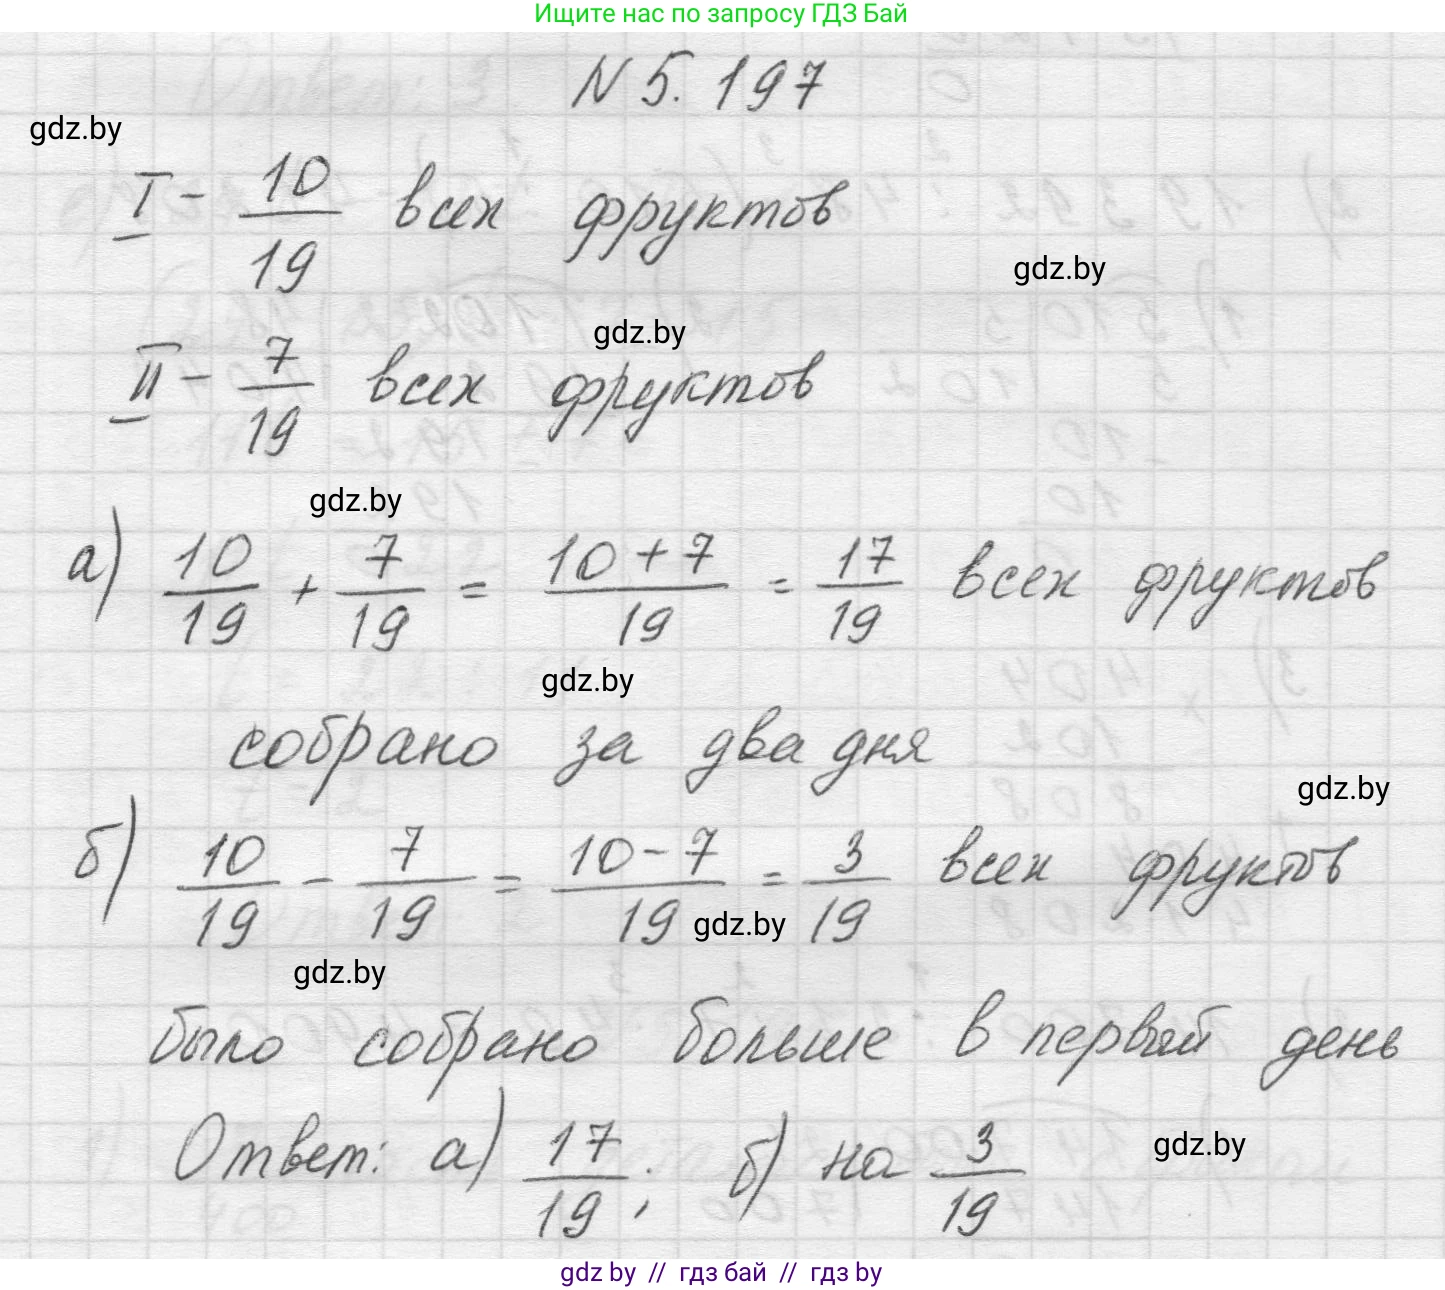 Ищите нас по запросу ГДЗ Бай
N 5.197
gdz.by
I - 10/19 всех фруктов
gdz.by
gdz.by
II - 7/19 всех фруктов
gdz.by
а) 10/19 + 7/19 = (10 + 7)/19 = 17/19 всех фруктов
gdz.by
собрано за два дня
gdz.by
б) 10/19 - 7/19 = (10 - 7)/19 = 3/19 всех фруктов
gdz.by
gdz.by
было собрано больше в первый день
Ответ: а) 17/19; б) на 3/19
gdz.by
gdz by // гдз бай // гдз by